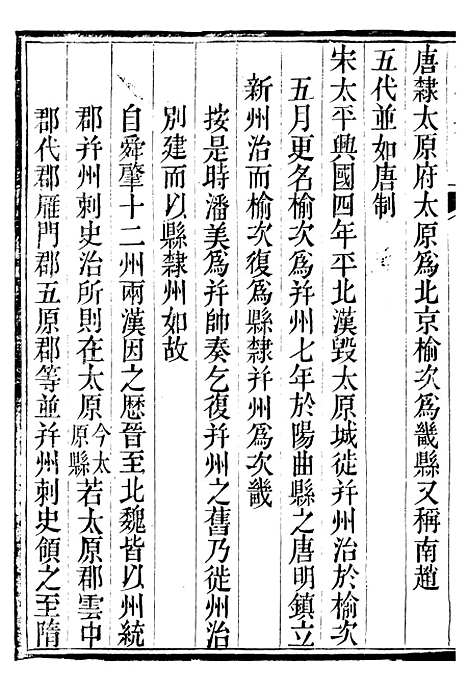 唐隸太原府太原爲北京榆次爲畿縣又稱南趙
五代並如唐制
宋太平興國四年平北漢毀太原城徙并州治於榆次
五月更名榆次爲并州七年於陽曲縣之唐明鎮立
新州治而榆次復爲縣隸并州爲次畿
按是時潘美爲并帥奏乞復并州之舊乃徙州治
別建而以縣隸州如故
自舜肇十二州兩漢因之歷晉至北魏皆以州統
郡并州刺史治所則在太原今太原縣若太原郡雲中
郡代郡雁門郡五原郡等並并州刺史領之至隋